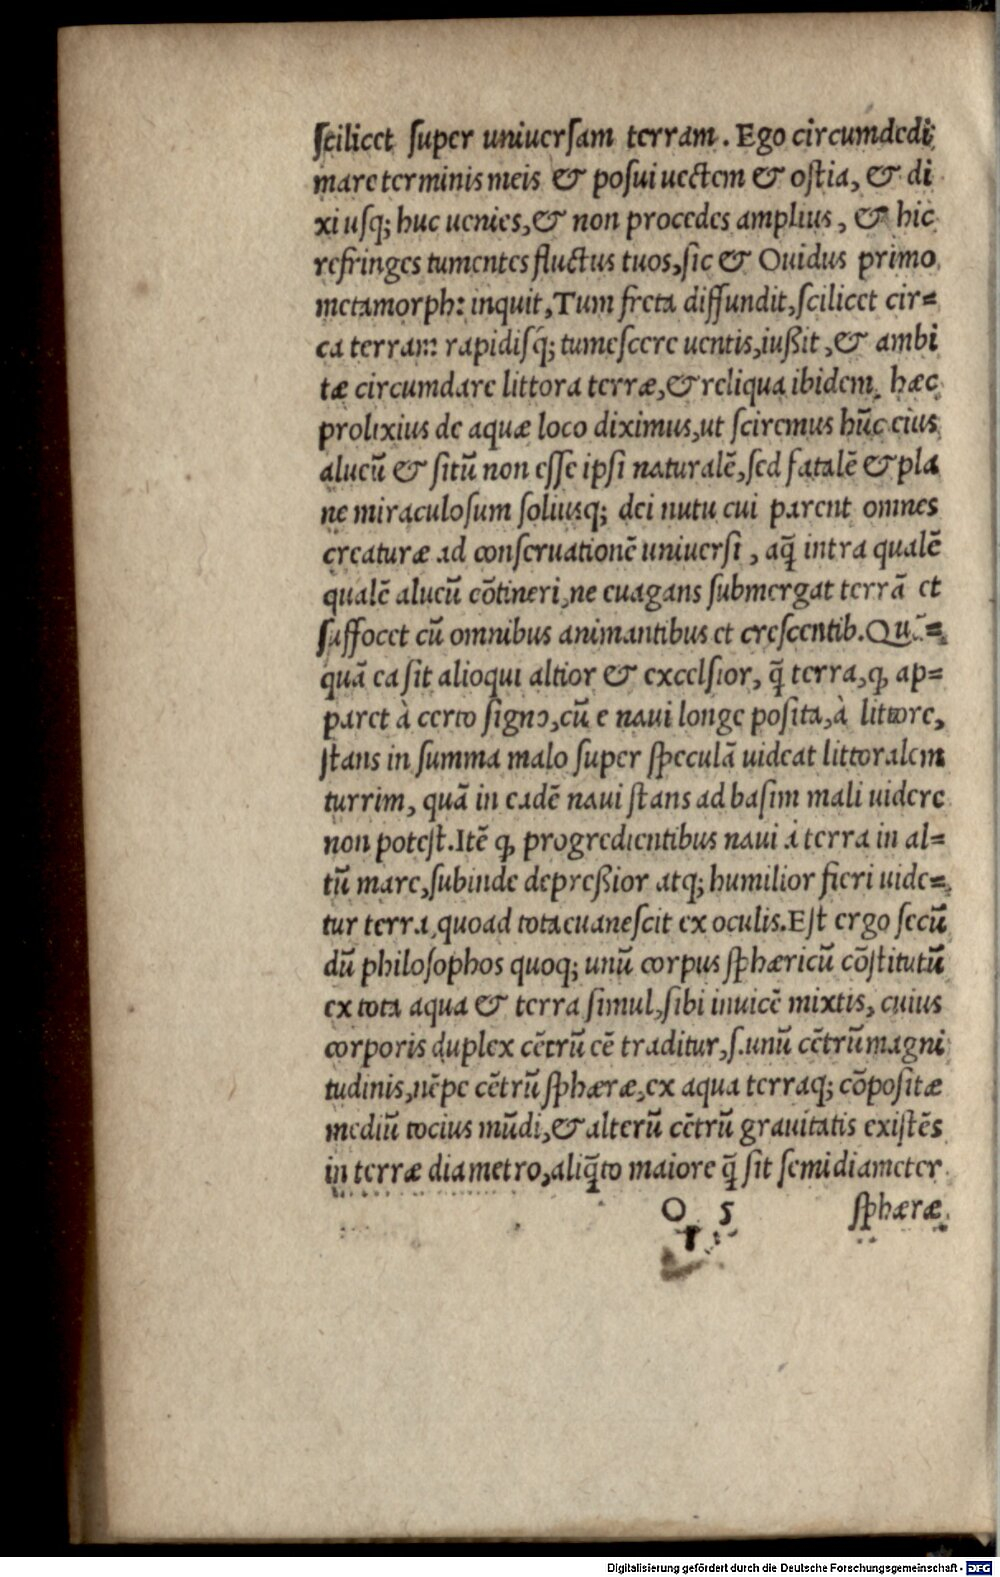 scilicet super uniuersam terram. Ego circumdedi
mare terminis meis & posui uectem & ostia, & di
xi usq; huc uenies, & non procedes amplius, & hic
refringes tumentes fluctus tuos, sic & Ouidus primo
metamorph: inquit, Tum freta diffundit, scilicet cir=
ca terram rapidisq́; tumescere uentis, iußit, & ambi
tæ circumdare littora terræ, & reliqua ibidem. hæc
prolixius de aquæ loco diximus, ut sciremus hũc eius
alueũ & sitũ non esse ipsi naturalẽ, sed fatalẽ & pla
ne miraculosum soliusq; dei nutu cui parent omnes
creaturæ ad conseruationẽ uniuersi, aq̃ intra qualẽ
qualẽ alueũ cõtineri, ne euagans submergat terrã et
suffocet cũ omnibus animantibus et crescentib.
quã ea sit alioqui altior & excelsior, q̃ terra, ꝙ ap=
paret à certo signo, cũ e naui longe posita, à littore,
stans in summa malo super speculã uideat littoralem
turrim, quã in eadẽ naui stans ad basim mali uidere
non potest. Itẽ ꝙ progredientibus naui à terra in al=
tũ mare, subinde depreßior atq; humilior fieri uide=
tur terra, quoad tota euanescit ex oculis. Est ergo secũ
dũ philosophos quoq; unũ corpus sphæricũ cõstitutũ
ex tota aqua & terra simul, sibi inuicẽ mixtis, cuius
corporis duplex cẽtrũ eẽ traditur, s. unũ cẽtrũ magni
tudinis, nẽpe cẽtrũ sphæræ, ex aqua terraq; cõpositæ
mediũ tocius mũdi, & alterũ cẽtrũ grauitatis existẽs
in terræ diametro, aliq̃to maiore q̃ sit semidiameter
O 5 sphæræ
Digitalisierung gefördert durch die Deutsche Forschungsgemeinschaft - DFG